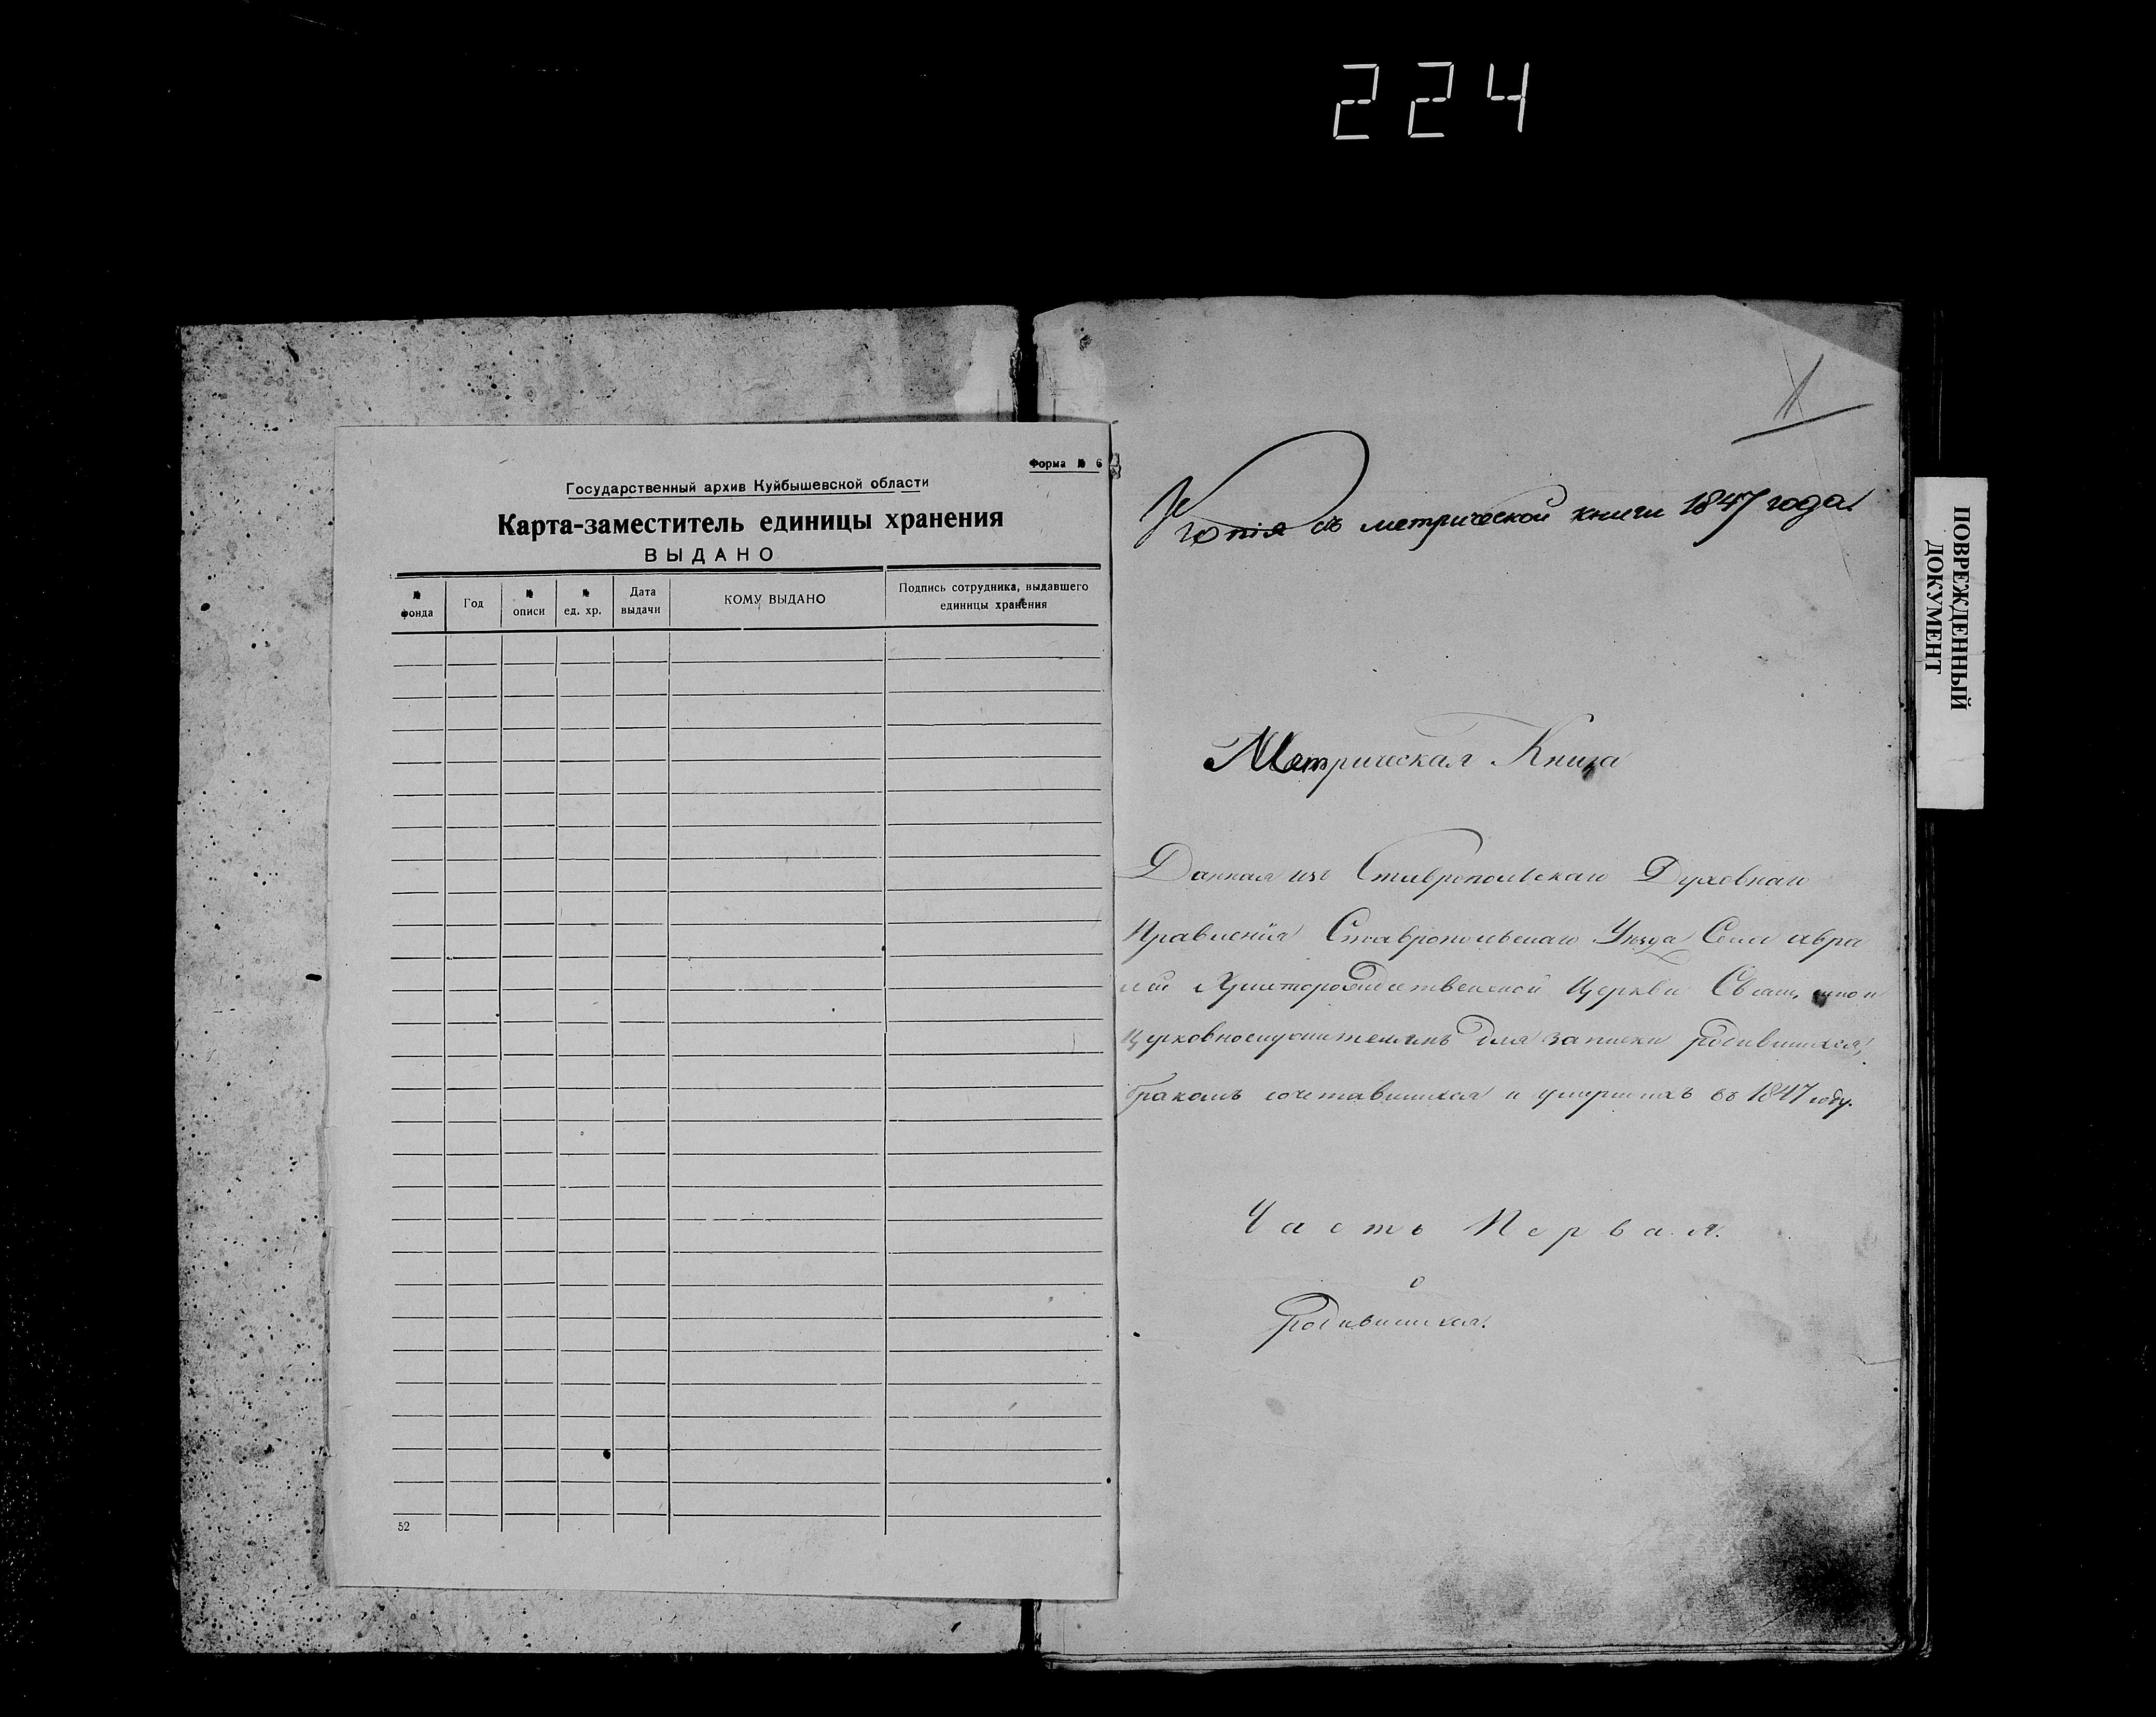 224
Форма № 6
Государственный архив Куйбышевской области
Карта-заместитель единицы хранения
ВЫДАНО
№ фонда
Год
№ описи
№ ед. хр.
Дата выдачи
КОМУ ВЫДАНО
Подпись сотрудника, выдавшего единицы хранения
52
Копія съ метрической книги 1847 года
Метрическая Книга
Данная изъ Ставропольскаго Духовнаго
Правленія Ставропольскаго Уѣзда Села
Христорождественской Церкви
Церковнослужителямъ для записки родившихся,
бракомъ сочетавшихся и умершихъ въ 1847 году.
Часть Первая.
о
Родившихся.
ПОВРЕЖДЕННЫЙ
ДОКУМЕНТ